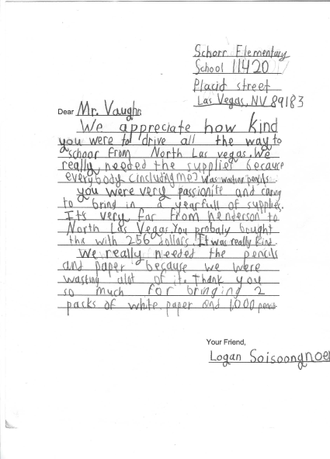 Schorr Elementary
School 11420
Placid street
Las Vegas, NV 89183
Dear Mr. Vaughn
We appreciate how kind
you were to drive all the way to
schoor from North Las vegas. We
really needed the supplier because
everybody (including me) was wasting pencils
you were very passionite and caring
to bring in a yearfull of supplies.
Its very far from henderson to
North Las Vegas. You probaly bought
this with 256 dollars. It was really kind
We really needed the pencils
and paper because we were
wasting alot of it. Thank you
so much for bringing 2
packs of white paper and 1,000 pencils
Your Friend,
Logan Soisoongnoen